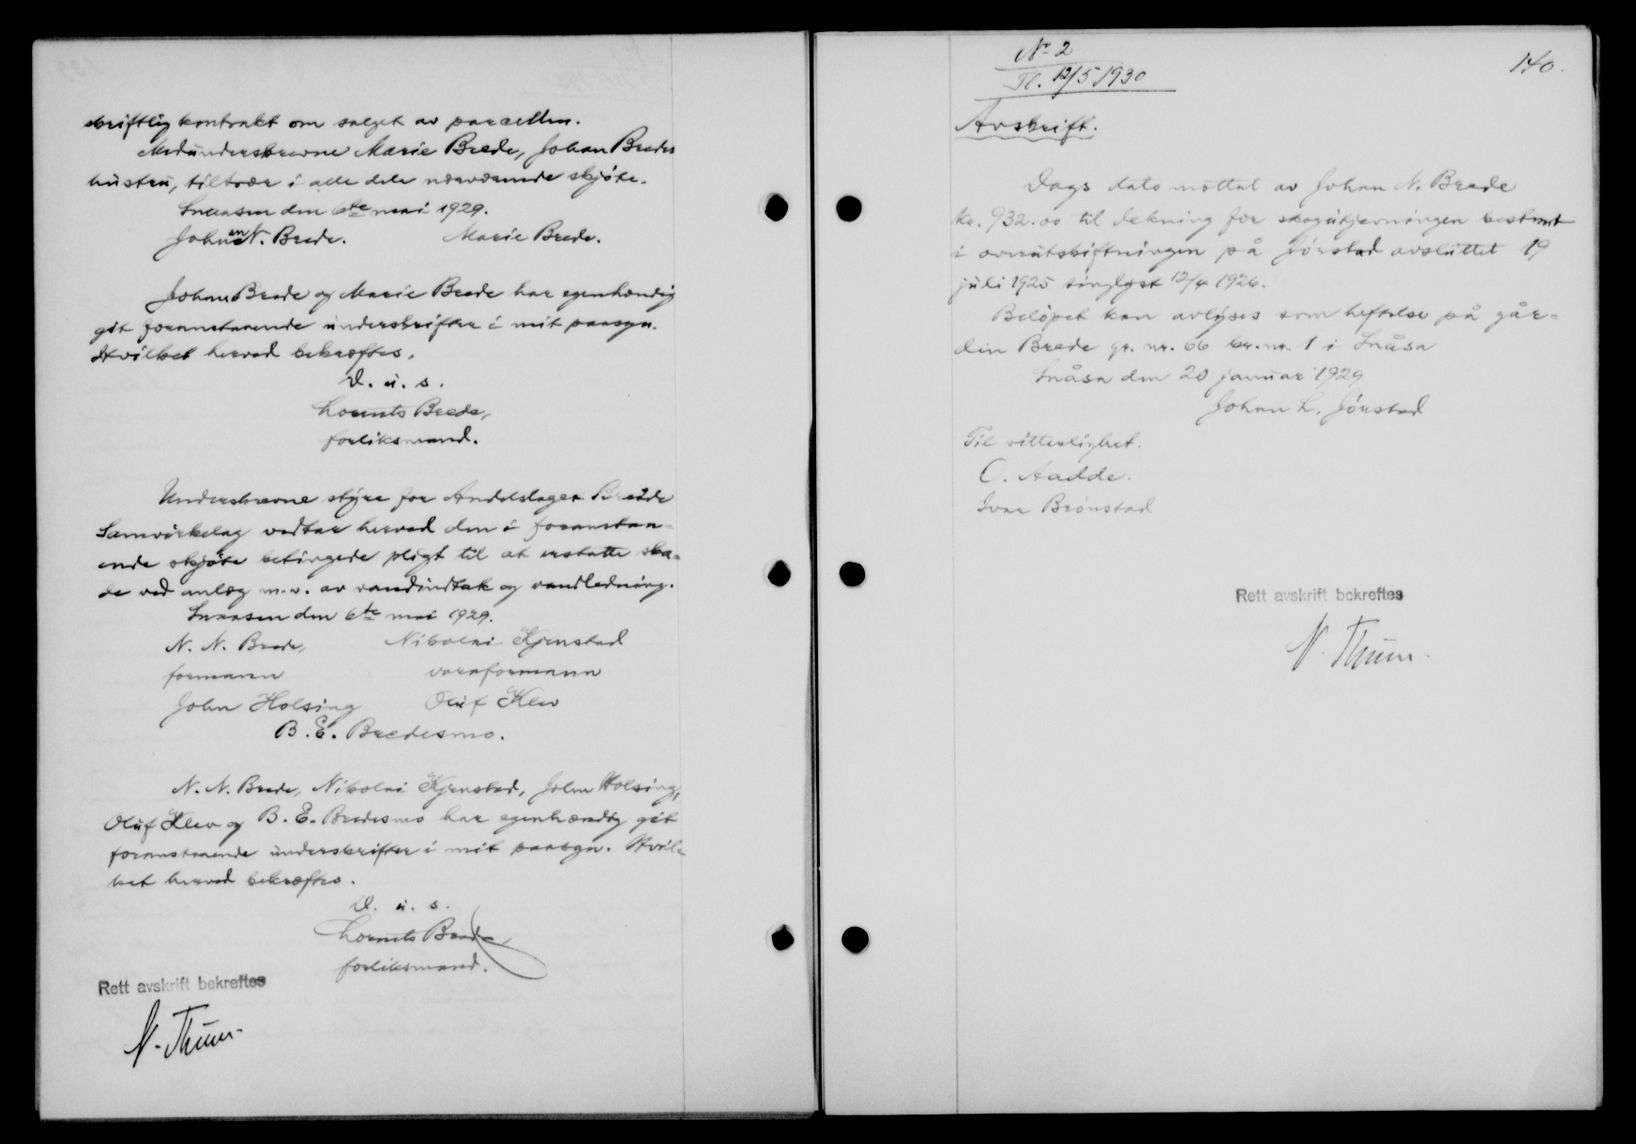 skriftlig kontrakt om salget av parcellen.
Medunderskrevne Marie Brede, Johan Bredes
hustru, tiltrær i alle dele nærværende skjøte.
Snaasen den 6te mai 1929.
Johan N. Brede. Marie Brede.
Johan Brede og Marie Brede har egenhændig
git foranstaaende underskrifter i mit paasyn.
Hvilket herved bekræftes.
D. u. s.
Lornts Brede,
forliksmand.
Underskrevne styre for Andelslaget Brede
Samvirkelag vedtar herved den i foranstaa-
ende skjøte betingede pligt til at erstatte ska-
de ved anlæg m.v. av vandindtak og vandledning.
Snaasen den 6te mai 1929.
N. N. Brede, Nikolai Kjenstad
formann varaformann
John Holsing Oluf Klev
B. E. Bredesmo.
N. N. Brede, Nikolai Kjenstad, John Holsing,
Oluf Klev og B. E. Bredesmo har egenhændig git
foranstaaende underskrifter i mit paasyn. Hvil-
ket herved bekræftes.
D. u. s.
Lornts Brede
forliksmand.
Rett avskrift bekreftes
N. Thum.
Nr 2
Tl. 12/5 1930
140.
Avskrift.
Dags dato mottat av Johan N. Brede
kr. 932.00 til dekning for skogutjevningen bestemt
i overutskiftningen på Jørstad avsluttet 19
juli 1925 tinglyst 12/4 1926.
Beløpet kan avlyses som heftelse på går-
den Brede gr. nr. 66 br. nr. 1 i Snåsa
Snåsa den 20 januar 1929
Johan L. Jørstad
Til vitterlighet.
O. Aadde.
Ivar Brønstad
Rett avskrift bekreftes
N. Thum.